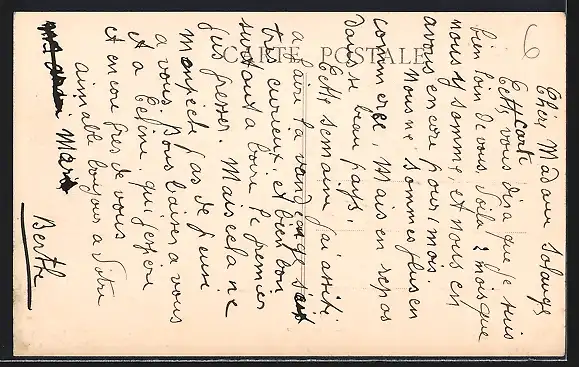 CARTE POSTALE
6
Chère Madame Solange
Cette carte vous dira que je suis
bien loin de vous. Voila 2 mois que
nous y somme, et nous en
avons encore pour 1 mois.
Nous ne sommes plus en
commerce, Mais en repos
dans se beau pays,
Cette semaine j'ai assité
a faire la vandange s'est
tres curieux, et bien bon
surtout a boire le premier
jus presser. Mais cela ne
m'empeche pas de penser
a vous. Nous baiser a vous
et a Celine qui j'espère
et encore pres de vous
aimable bonjour a Votre
Mari
Berthe